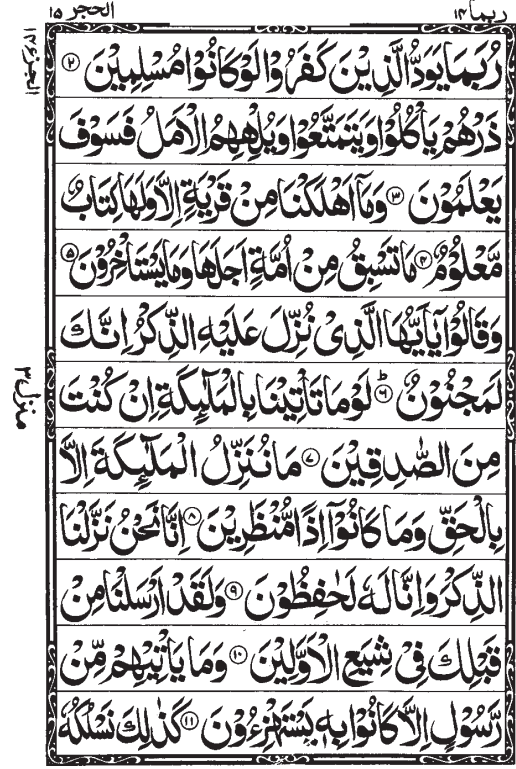 ربما ١٤
الحجر ١٥
رُبَمَا يَوَدُّ الَّذِيْنَ كَفَرُوْا لَوْ كَانُوْا مُسْلِمِيْنَ ۝٢
ذَرْهُمْ يَاْكُلُوْا وَيَتَمَتَّعُوْا وَيُلْهِهِمُ الْاَمَلُ فَسَوْفَ
يَعْلَمُوْنَ ۝٣ وَمَاۤ اَهْلَكْنَا مِنْ قَرْيَةٍ اِلَّا وَلَهَا كِتَابٌ
مَّعْلُوْمٌ ۝٤ مَا تَسْبِقُ مِنْ اُمَّةٍ اَجَلَهَا وَمَا يَسْتَاْخِرُوْنَ ۝٥
وَقَالُوْا يٰۤاَيُّهَا الَّذِىْ نُزِّلَ عَلَيْهِ الذِّكْرُ اِنَّكَ
لَمَجْنُوْنٌ ۝٦ؕ لَوْ مَا تَاْتِيْنَا بِالْمَلٰٓئِكَةِ اِنْ كُنْتَ
مِنَ الصّٰدِقِيْنَ ۝٧ مَا نُنَزِّلُ الْمَلٰٓئِكَةَ اِلَّا
بِالْحَقِّ وَمَا كَانُوْۤا اِذًا مُّنْظَرِيْنَ ۝٨ اِنَّا نَحْنُ نَزَّلْنَا
الذِّكْرَ وَاِنَّا لَهٗ لَحٰفِظُوْنَ ۝٩ وَلَقَدْ اَرْسَلْنَا مِنْ
قَبْلِكَ فِىْ شِيَعِ الْاَوَّلِيْنَ ۝١٠ وَمَا يَاْتِيْهِمْ مِّنْ
رَّسُوْلٍ اِلَّا كَانُوْا بِهٖ يَسْتَهْزِءُوْنَ ۝١١ كَذٰلِكَ نَسْلُكُهٗ
منزل ٣